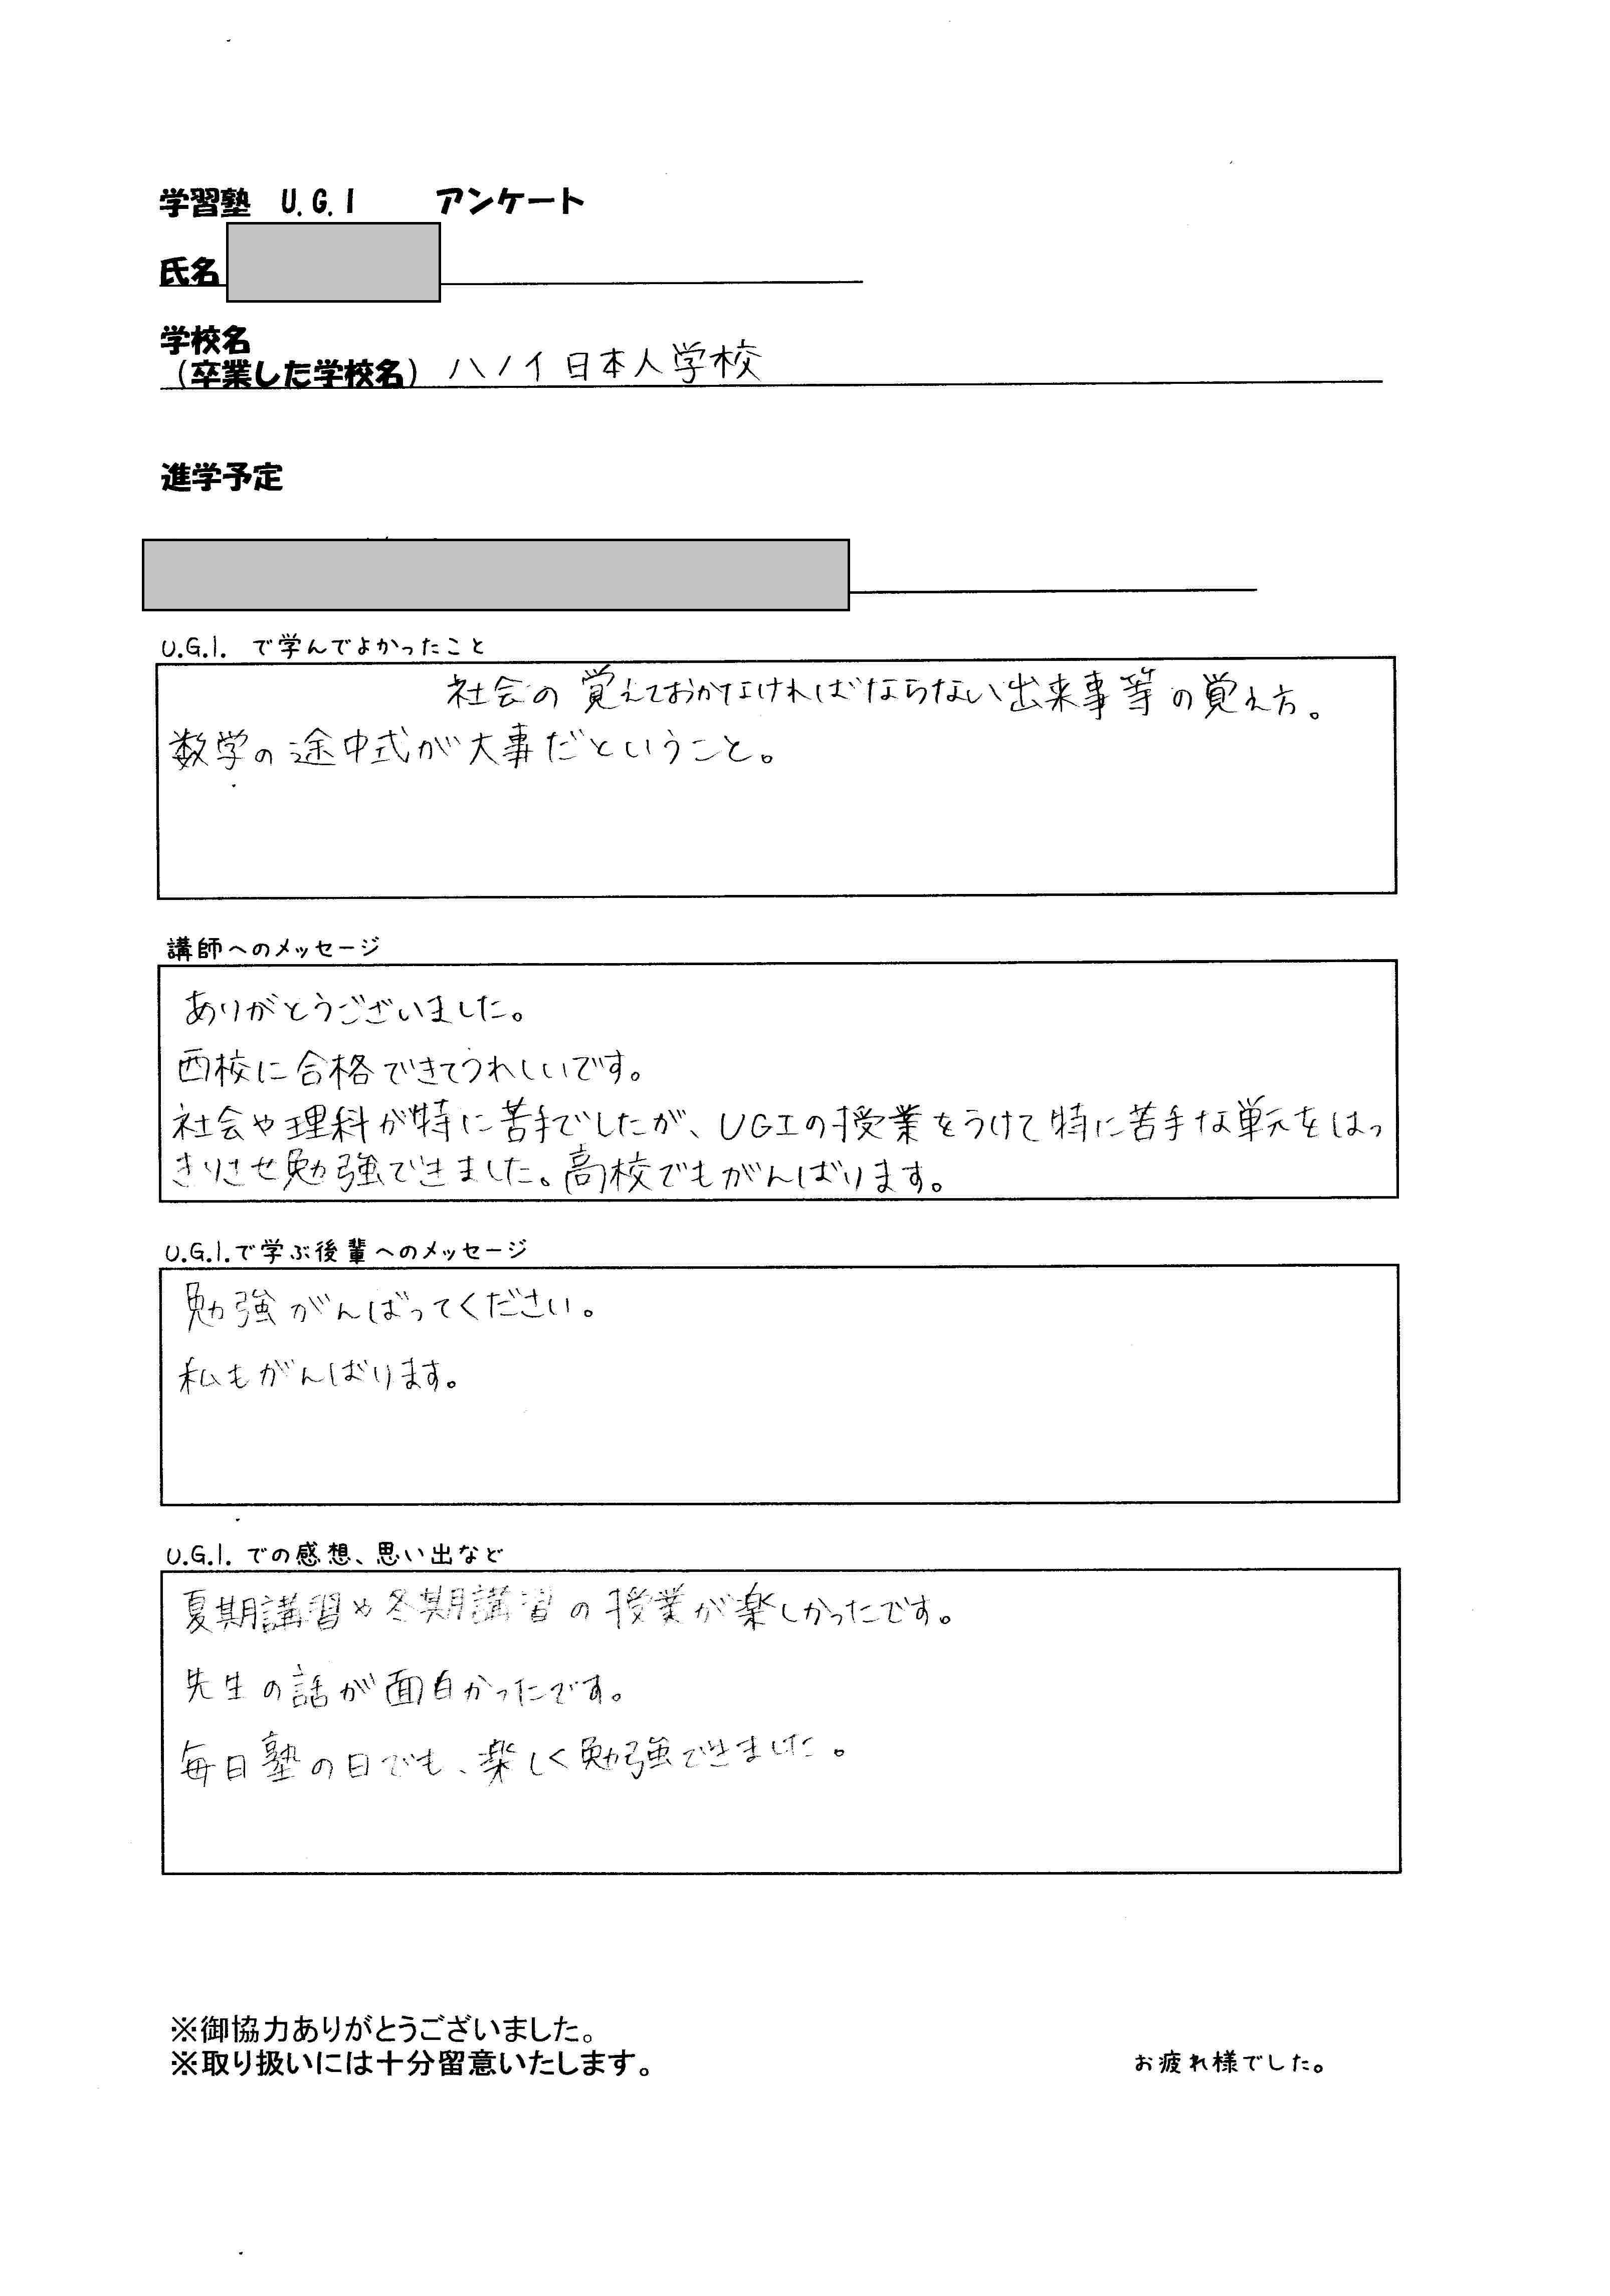 学習塾 U.G.I アンケート
氏名
学校名
（卒業した学校名） ハノイ日本人学校
進学予定
U.G.I. で学んでよかったこと
社会の覚えておかなければならない出来事等の覚え方。
数学の途中式が大事だということ。
講師へのメッセージ
ありがとうございました。
西校に合格できてうれしいです。
社会や理科が特に苦手でしたが、UGIの授業をうけて特に苦手な単元をはっ
きりさせ勉強できました。高校でもがんばります。
U.G.I.で学ぶ後輩へのメッセージ
勉強がんばってください。
私もがんばります。
U.G.I. での感想、思い出など
夏期講習や冬期講習の授業が楽しかったです。
先生の話が面白かったです。
毎日塾の日でも、楽しく勉強できました。
※御協力ありがとうございました。
※取り扱いには十分留意いたします。
お疲れ様でした。